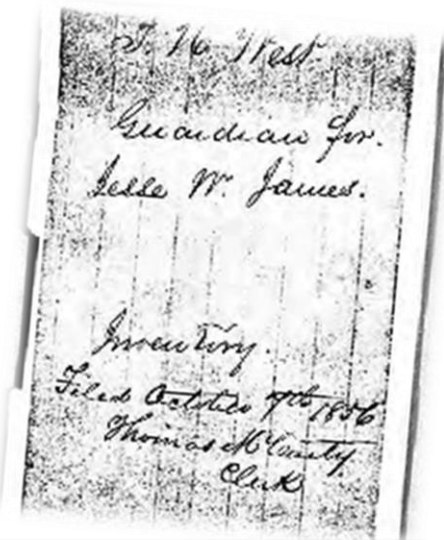 T. W. West
Guardian for.
Jesse W. James.
Inventory.
Filed October 7th 1856
Thomas McCarty
Clerk